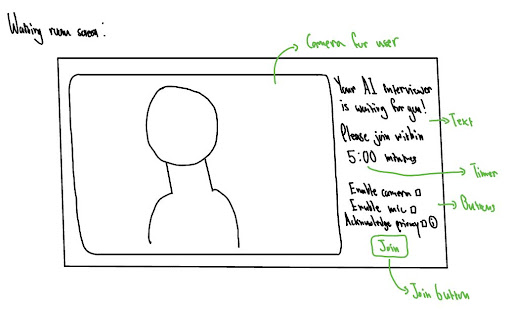 Waiting room screen:
Camera for user
Your AI Interviewer
is waiting for you!
Text
Please join within
5:00 minutes
Timer
Enable camera
Enable mic
Buttons
Acknowledge privacy i
Join
Join button